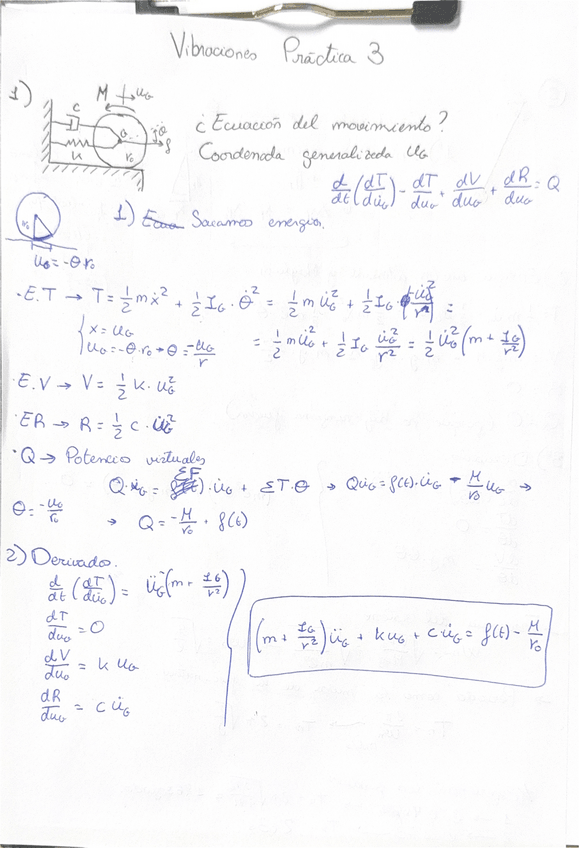 Vibraciones Práctica 3
1)
M u_G
c
θ̈
G
f
k
r₀
¿Ecuación del movimiento?
Coordenada generalizada u_G
d/dt (dT/du̇_G) - dT/du_G + dV/du_G + dR/du̇_G = Q
1) Sacamos energías.
u_G = -θ·r₀
·E.T → T = 1/2 m ẋ² + 1/2 I_G · θ̇² = 1/2 m u̇_G² + 1/2 I_G · (-u̇_G²/r²) =
{ x = u_G
u_G = -θ·r₀ → θ = -u_G/r
= 1/2 m u̇_G² + 1/2 I_G u̇_G²/r² = 1/2 u̇_G² (m + I_G/r²)
·E.V → V = 1/2 k · u_G²
·ER → R = 1/2 c · u̇_G²
·Q → Potencias virtuales
Q·u̇_G = ΣF · u̇_G + ΣT·θ → Qu̇_G = f(t)·u̇_G - M/r₀ u_G →
θ = -u_G/r₀ → Q = -M/r₀ + f(t)
2) Derivado.
d/dt (dT/du̇_G) = ü_G (m + I_G/r²)
dT/du_G = 0
dV/du_G = k u_G
dR/du_G = c u̇_G
(m + I_G/r²) ü_G + k u_G + c u̇_G = f(t) - M/r₀